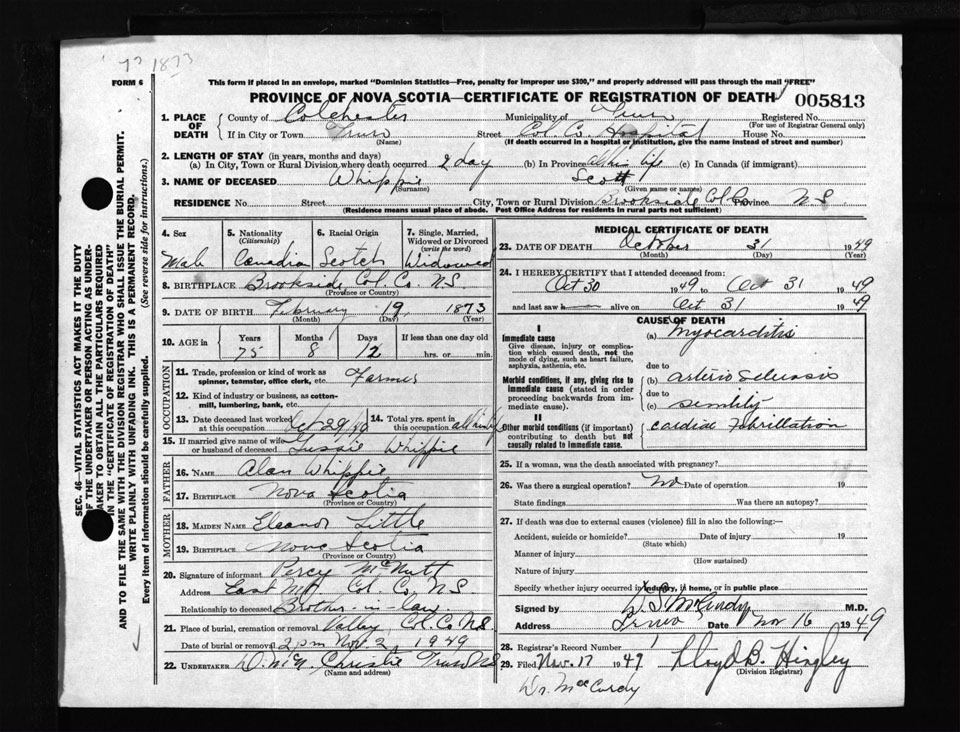 1873
FORM 6
This form if placed in an envelope, marked "Dominion Statistics—Free, penalty for improper use $300," and properly addressed will pass through the mail "FREE"
PROVINCE OF NOVA SCOTIA—CERTIFICATE OF REGISTRATION OF DEATH
005813
1. PLACE OF DEATH
County of Colchester Municipality of Truro Registered No.
(For use of Registrar General only)
If in City or Town Truro Street Col. Co. Hospital House No.
(Name) (If death occurred in a hospital or institution, give the name instead of street and number)
2. LENGTH OF STAY (in years, months and days)
(a) In City, Town or Rural Division, where death occurred 2 day (b) In Province all his life (c) In Canada (if immigrant)
3. NAME OF DECEASED Whippie Scott
(Surname) (Given name or names)
RESIDENCE No. Street City, Town or Rural Division Brookside Col. Co Province N.S
(Residence means usual place of abode. Post Office Address for residents in rural parts not sufficient)
4. Sex
Male
5. Nationality
(Citizenship)
Canadian
6. Racial Origin
Scotch
7. Single, Married, Widowed or Divorced
(write the word)
Widowed
8. BIRTHPLACE Brookside Col. Co. N.S.
(Province or Country)
9. DATE OF BIRTH February 19 1873
(Month) (Day) (Year)
10. AGE in Years Months Days If less than one day old
75 8 12 hrs. or min.
OCCUPATION
11. Trade, profession or kind of work as spinner, teamster, office clerk, etc. Farmer
12. Kind of industry or business, as cotton-mill, lumbering, bank, etc.
13. Date deceased last worked at this occupation Oct 29/48
14. Total yrs. spent in this occupation all his life
15. If married give name of wife or husband of deceased Whippie
FATHER
16. NAME Alan Whippie
17. BIRTHPLACE Nova Scotia
(Province or Country)
MOTHER
18. MAIDEN NAME Eleanor Little
19. BIRTHPLACE Nova Scotia
(Province or Country)
20. Signature of informant Percy McNutt
Address East Mt Col. Co. N.S.
Relationship to deceased Brother-in-law
21. Place of burial, cremation or removal Valley Col. Co N.S.
Date of burial or removal 2 pm Nov 2, 1949
22. UNDERTAKER Christie Truro N.S.
(Name and address)
MEDICAL CERTIFICATE OF DEATH
23. DATE OF DEATH October 31 1949
(Month) (Day) (Year)
24. I HEREBY CERTIFY that I attended deceased from:
Oct 30 1949 to Oct 31 1949
and last saw h alive on Oct 31 1949
CAUSE OF DEATH
I
Immediate cause
Give disease, injury or complication which caused death, not the mode of dying, such as heart failure, asphyxia, asthenia, etc.
(a) Myocarditis
due to
Morbid conditions, if any, giving rise to immediate cause (stated in order proceeding backwards from immediate cause).
(b) arterio Sclerosis
due to
(c) senility
II
Other morbid conditions (if important) contributing to death but not causally related to immediate cause.
Cardiac Fibrillation
25. If a woman, was the death associated with pregnancy?
26. Was there a surgical operation? No Date of operation 19
State findings Was there an autopsy?
27. If death was due to external causes (violence) fill in also the following:—
Accident, suicide or homicide? Date of injury 19
(State which)
Manner of injury
(How sustained)
Nature of injury
Specify whether injury in industry, in home, or in public place
Signed by D. S. McCurdy M.D.
Address Truro Date Nov 16 1949
28. Registrar's Record Number
29. Filed Nov. 17 1949 Lloyd B. Hingley
(Division Registrar)
Dr. McCurdy
SEC. 46—VITAL STATISTICS ACT MAKES IT THE DUTY OF THE UNDERTAKER OR PERSON ACTING AS UNDERTAKER TO OBTAIN ALL THE PARTICULARS REQUIRED IN THE "CERTIFICATE OF REGISTRATION OF DEATH" AND TO FILE THE SAME WITH THE DIVISION REGISTRAR WHO SHALL ISSUE THE BURIAL PERMIT.
WRITE PLAINLY WITH UNFADING INK. THIS IS A PERMANENT RECORD.
Every item of Information should be carefully supplied. (See reverse side for instructions.)